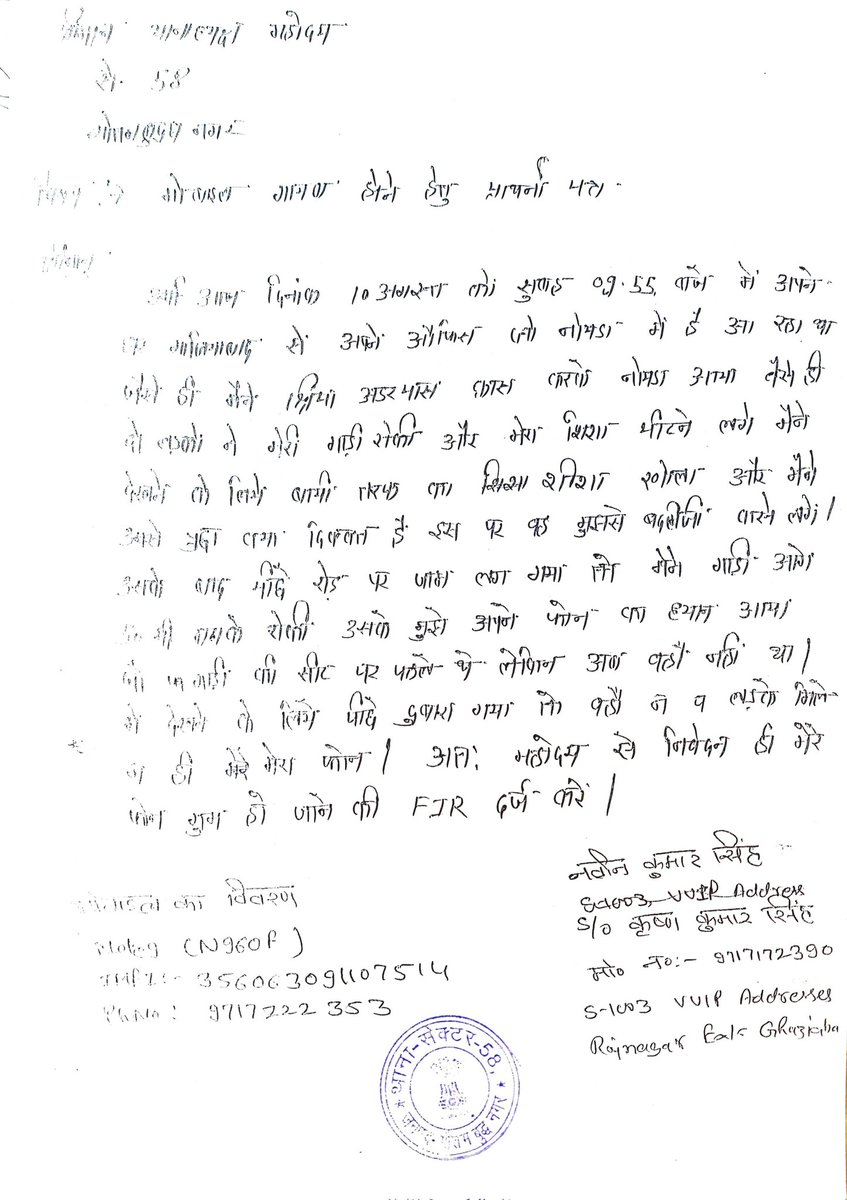 श्रीमान थानाध्यक्ष महोदय
से. 58
गौतमबुद्ध नगर
विषय :- मोबाइल गायब होने हेतु प्रार्थना पत्र
श्रीमान
आज दिनांक 10 अगस्त को सुबह 09.55 बजे में अपने
घर गाजियाबाद से अपने ऑफिस जो नोयडा में है आ रहा था
जैसे ही मैने अडरपास क्रास करके नोयडा आया वैसे ही
दो लड़को ने मेरी गाड़ी रोकी और मेरा शिशा पीटने लगे मैने
देखने के लिये बायी तरफ का शिशा शीशा खोला और मैने
उनसे पूछा क्या दिक्कत है इस पर वह मुझसे बदतमिजी करने लगे।
उसके बाद पीछे रोड़ पर जाम लग गया तो मैने गाड़ी आगे
रोकी उसके मुझे अपने फोन का ध्यान आया
जो गाड़ी की सीट पर पहले थे लेकिन अब वहाँ नही था।
में देखने के लिये पीछे दुबारा गया तो वहाँ न व लड़के मिले
न ही मेरे मेरा फोन। अतः महोदय से निवेदन ही मेरे
फोन गुम हो जाने की FIR दर्ज करें।
नवीन कुमार सिंह
S/O कृष्ण कुमार सिंह
मो० नं०:- 9717172390
S-1003 VVIP Addresses
Rajnagar Extn Ghaziaba
मोबाइल का विवरण
(N960F)
IMEI:- 356063091107514
Ph No: 9717222353
थाना-सेक्टर-58,
जनपद-गौतम बुद्ध नगर